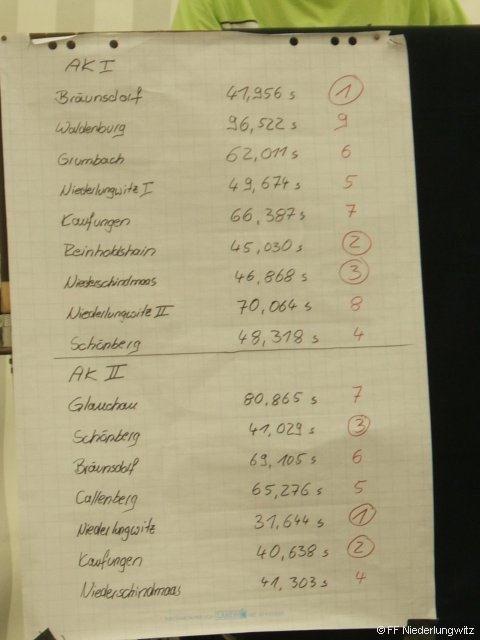 AK I
Bräunsdorf 41,956 s 1
Waldenburg 96,522 s 9
Grumbach 62,011 s 6
Niederlungwitz I 49,674 s 5
Kaufungen 66,387 s 7
Reinholdshain 45,030 s 2
Niederschindmaas 46,868 s 3
Niederlungwitz II 70,064 s 8
Schönberg 48,318 s 4
AK II
Glauchau 80,865 s 7
Schönberg 41,029 s 3
Bräunsdorf 69,105 s 6
Callenberg 65,276 s 5
Niederlungwitz 31,644 s 1
Kaufungen 40,638 s 2
Niederschindmaas 41,303 s 4
© FF Niederlungwitz